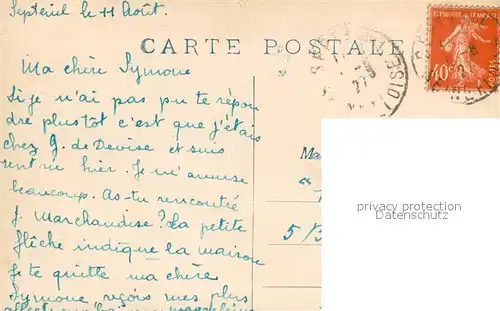 Septeuil le 11 Août.
CARTE POSTALE
RÉPUBLIQUE FRANÇAISE
40c
27
Ma chère Symone
Si je n'ai pas pu te répon
dre plustôt c'est que j'étais
chez G. de Devise et suis
rentrée hier. Je m'amuse
beaucoup. As-tu rencontré
J. Marchandise? La petite
flèche indique la maison
Je te quitte ma chère
Symone reçois mes plus
Ma
5
privacy protection
Datenschutz